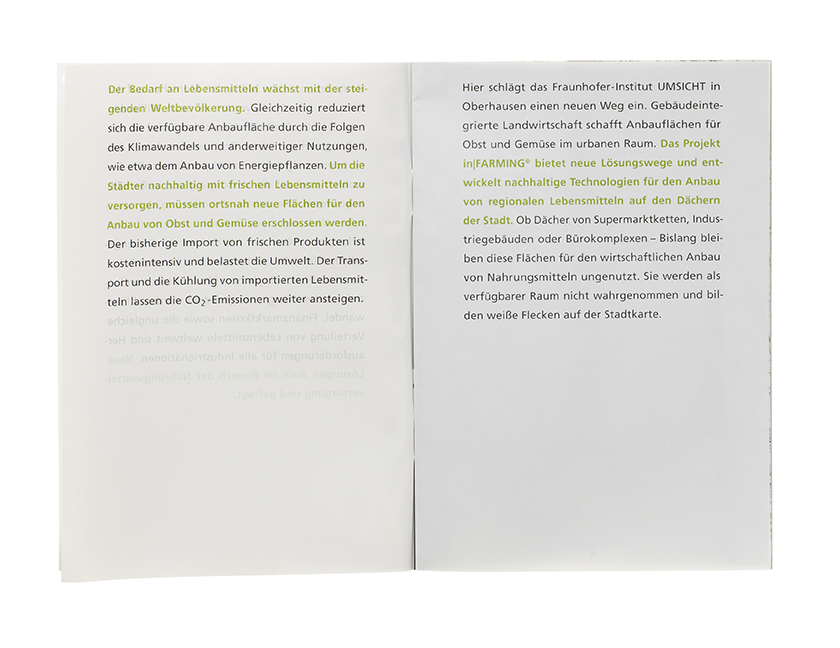 Der Bedarf an Lebensmitteln wächst mit der stei-
genden Weltbevölkerung. Gleichzeitig reduziert
sich die verfügbare Anbaufläche durch die Folgen
des Klimawandels und anderweitiger Nutzungen,
wie etwa dem Anbau von Energiepflanzen. Um die
Städter nachhaltig mit frischen Lebensmitteln zu
versorgen, müssen ortsnah neue Flächen für den
Anbau von Obst und Gemüse erschlossen werden.
Der bisherige Import von frischen Produkten ist
kostenintensiv und belastet die Umwelt. Der Trans-
port und die Kühlung von importierten Lebensmit-
teln lassen die CO₂-Emissionen weiter ansteigen.
wandel, Finanzmarktkrisen sowie die ungleiche
Verteilung von Lebensmitteln weltweit sind Her-
ausforderungen für alle Industrienationen. Neue
Lösungen auch im Bereich der Nahrungsmittel
versorgung sind gefragt.
Hier schlägt das Fraunhofer-Institut UMSICHT in
Oberhausen einen neuen Weg ein. Gebäudeinte-
grierte Landwirtschaft schafft Anbauflächen für
Obst und Gemüse im urbanen Raum. Das Projekt
in|FARMING® bietet neue Lösungswege und ent-
wickelt nachhaltige Technologien für den Anbau
von regionalen Lebensmitteln auf den Dächern
der Stadt. Ob Dächer von Supermarktketten, Indus-
triegebäuden oder Bürokomplexen – Bislang blei-
ben diese Flächen für den wirtschaftlichen Anbau
von Nahrungsmitteln ungenutzt. Sie werden als
verfügbarer Raum nicht wahrgenommen und bil-
den weiße Flecken auf der Stadtkarte.